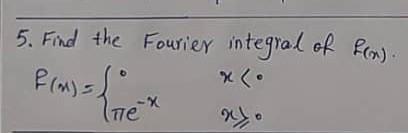 5. Find the Fourier integral of f(x).
f(x) = { 0    x < 0
πe^-x    x ≥ 0